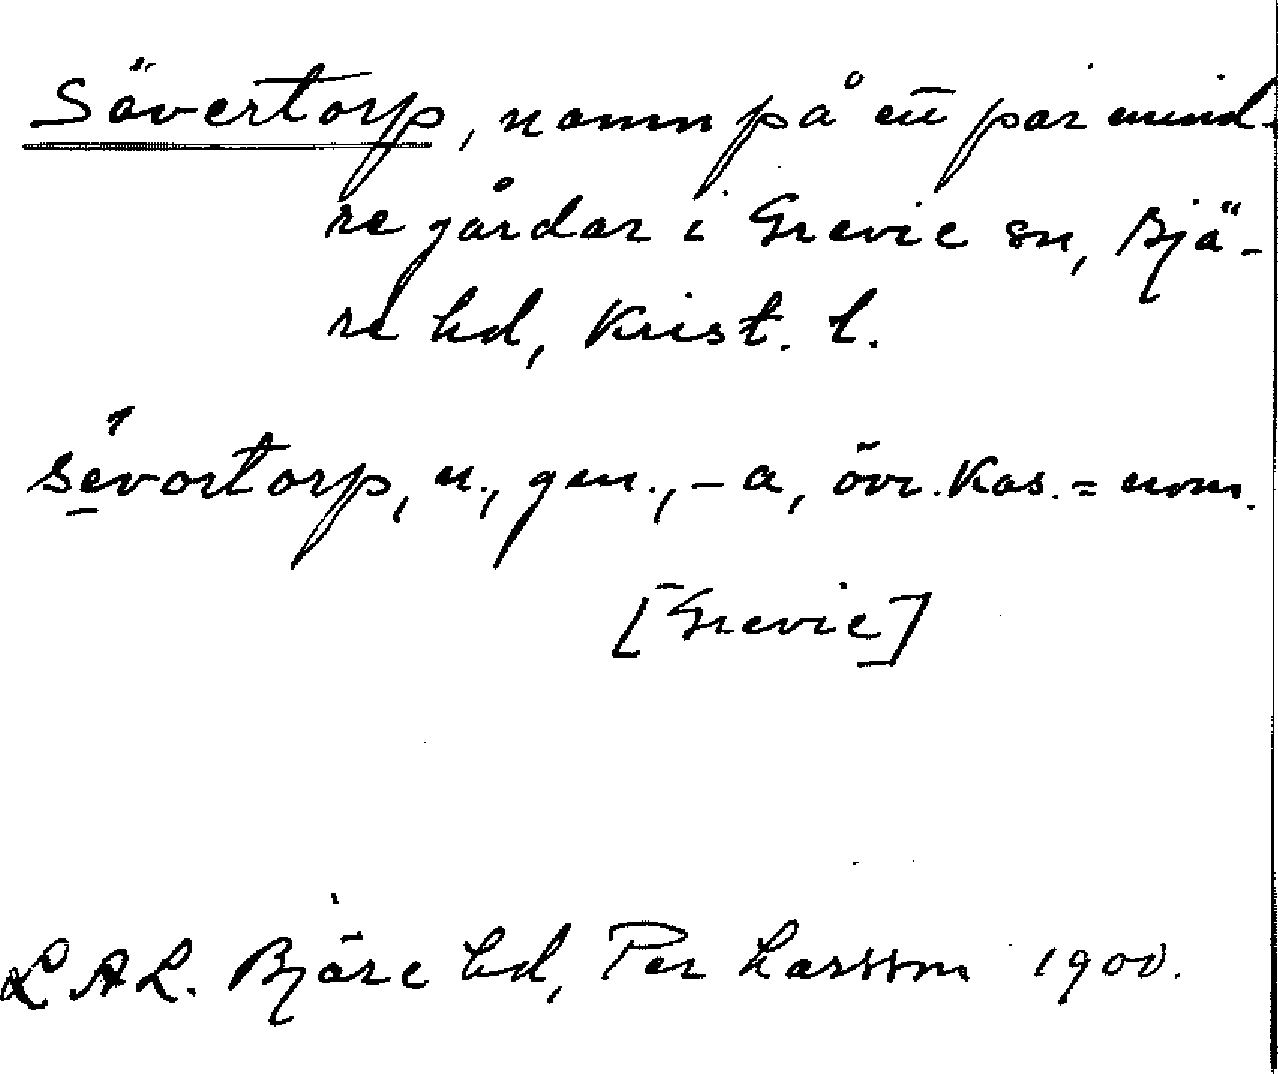 Sävertorp, namn på ett par mind-
re gårdar i Grevie sn, Bjä-
re hd, Krist. l.
sevortorp, n., gen., -a, övr. kas. = nom.
[Grevie]
LAL. Bjäre hd, Per Larsson 1900.